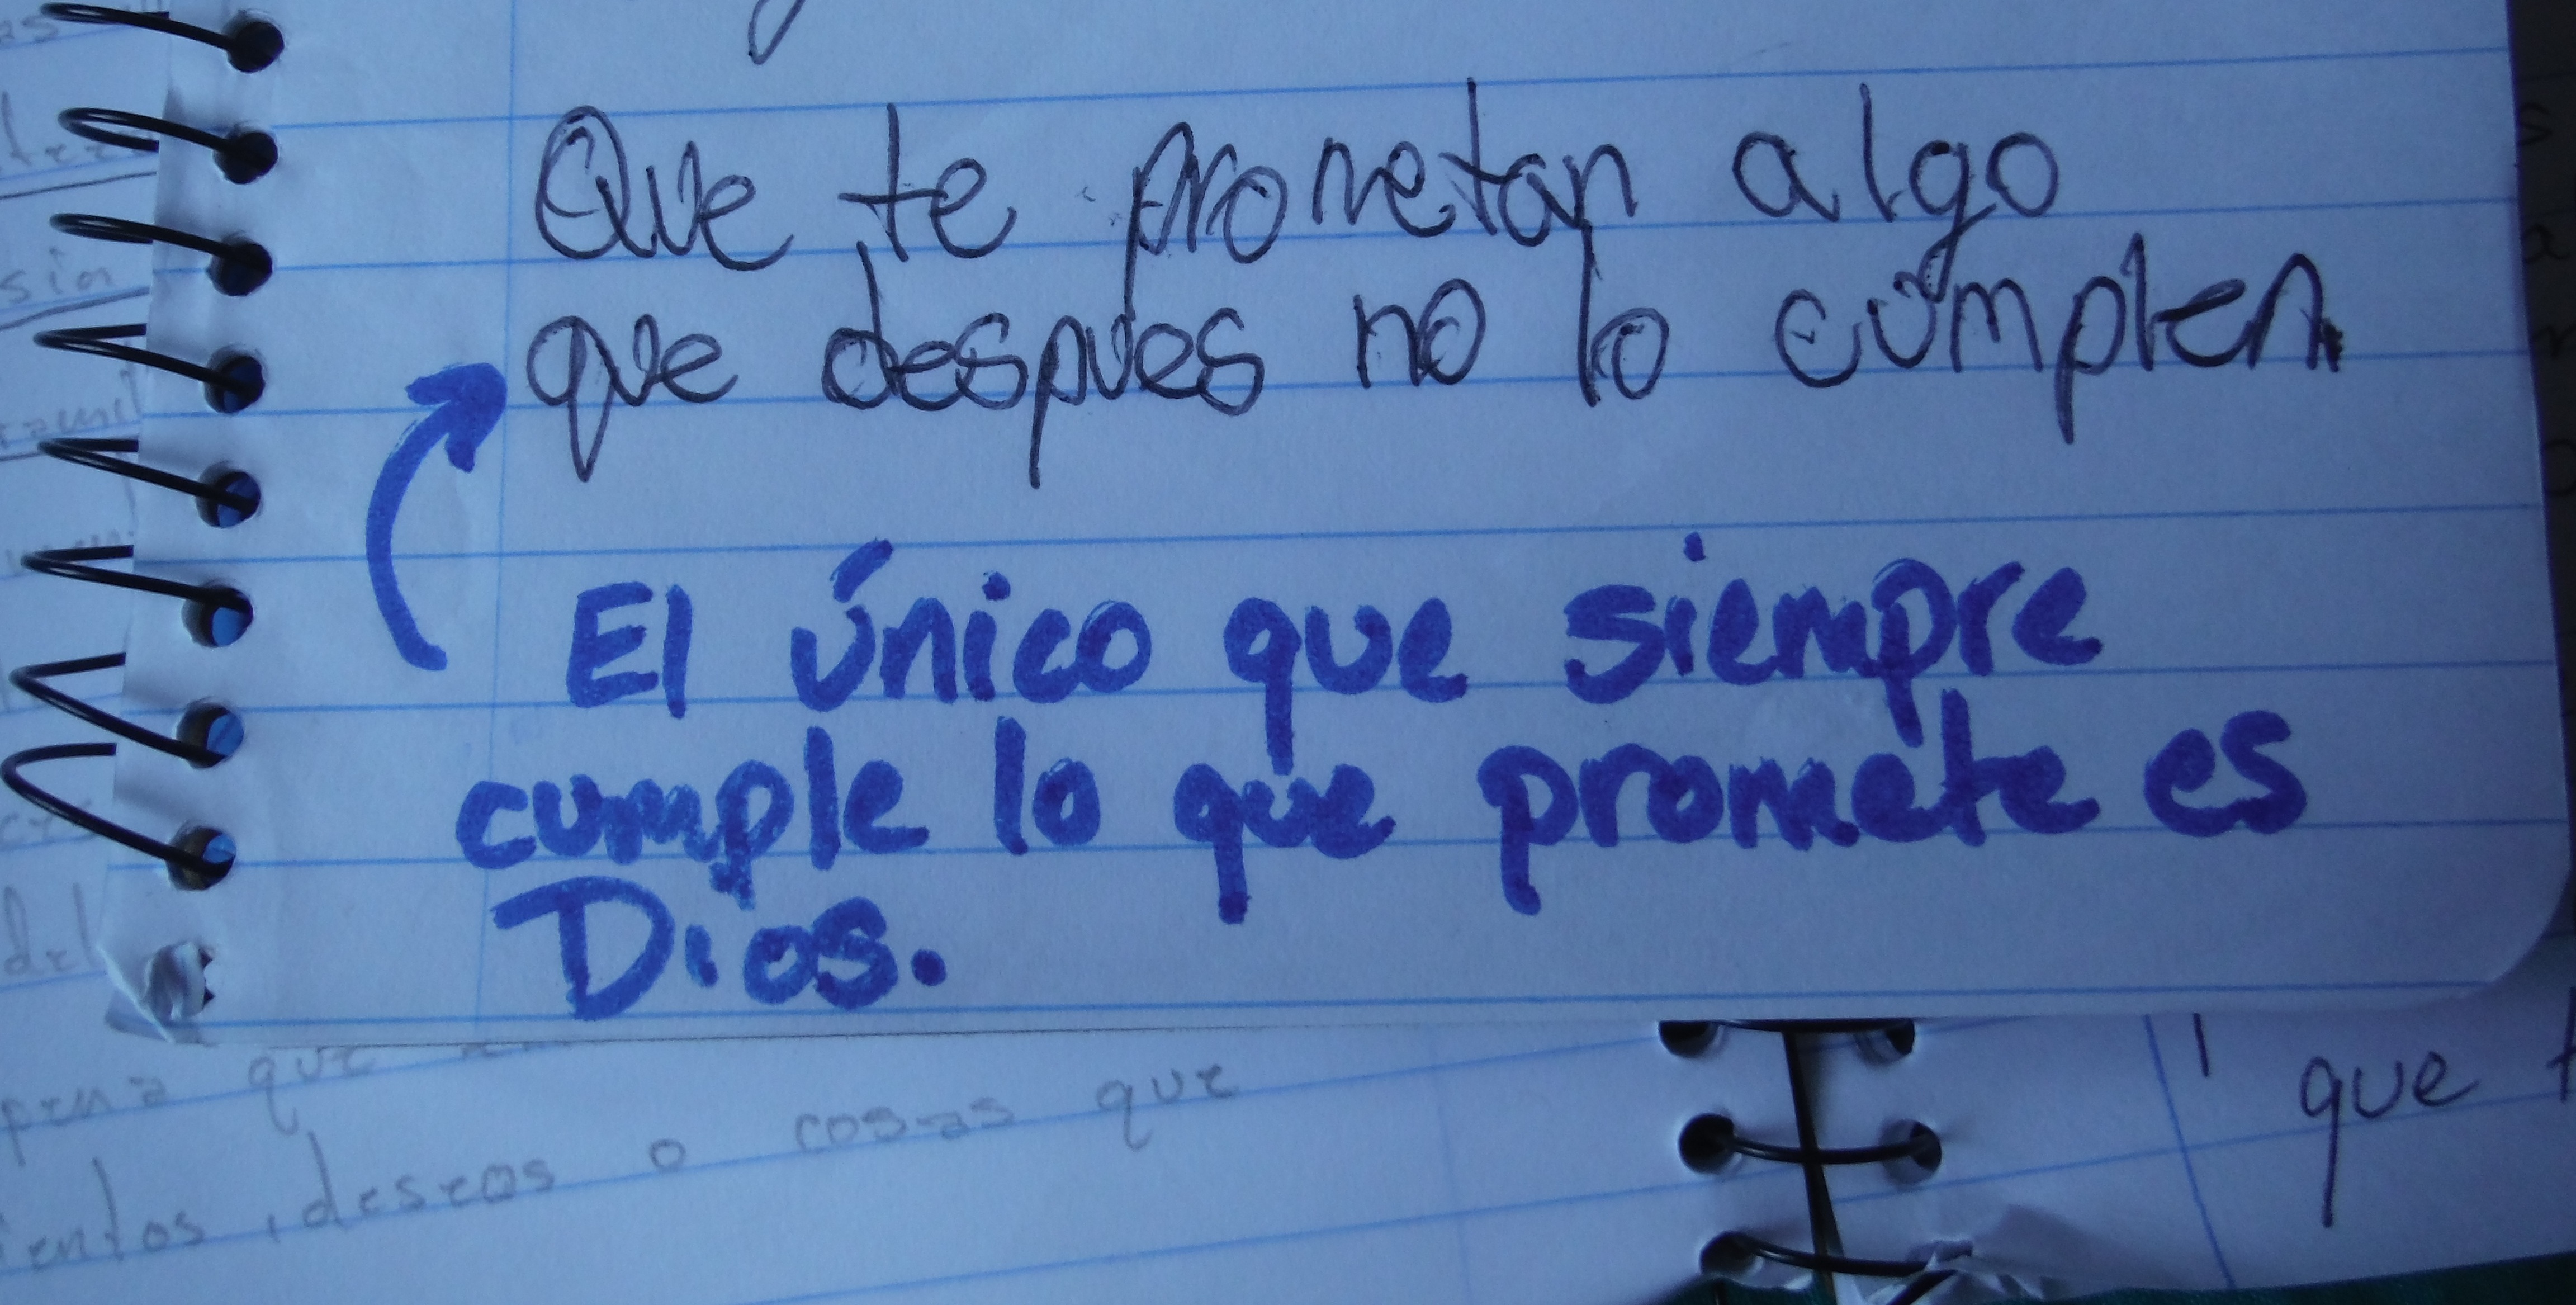 Que te prometan algo
que despues no lo cumplen.
El único que siempre
cumple lo que promete es
Dios.
que
cosas que
,deseos o
que